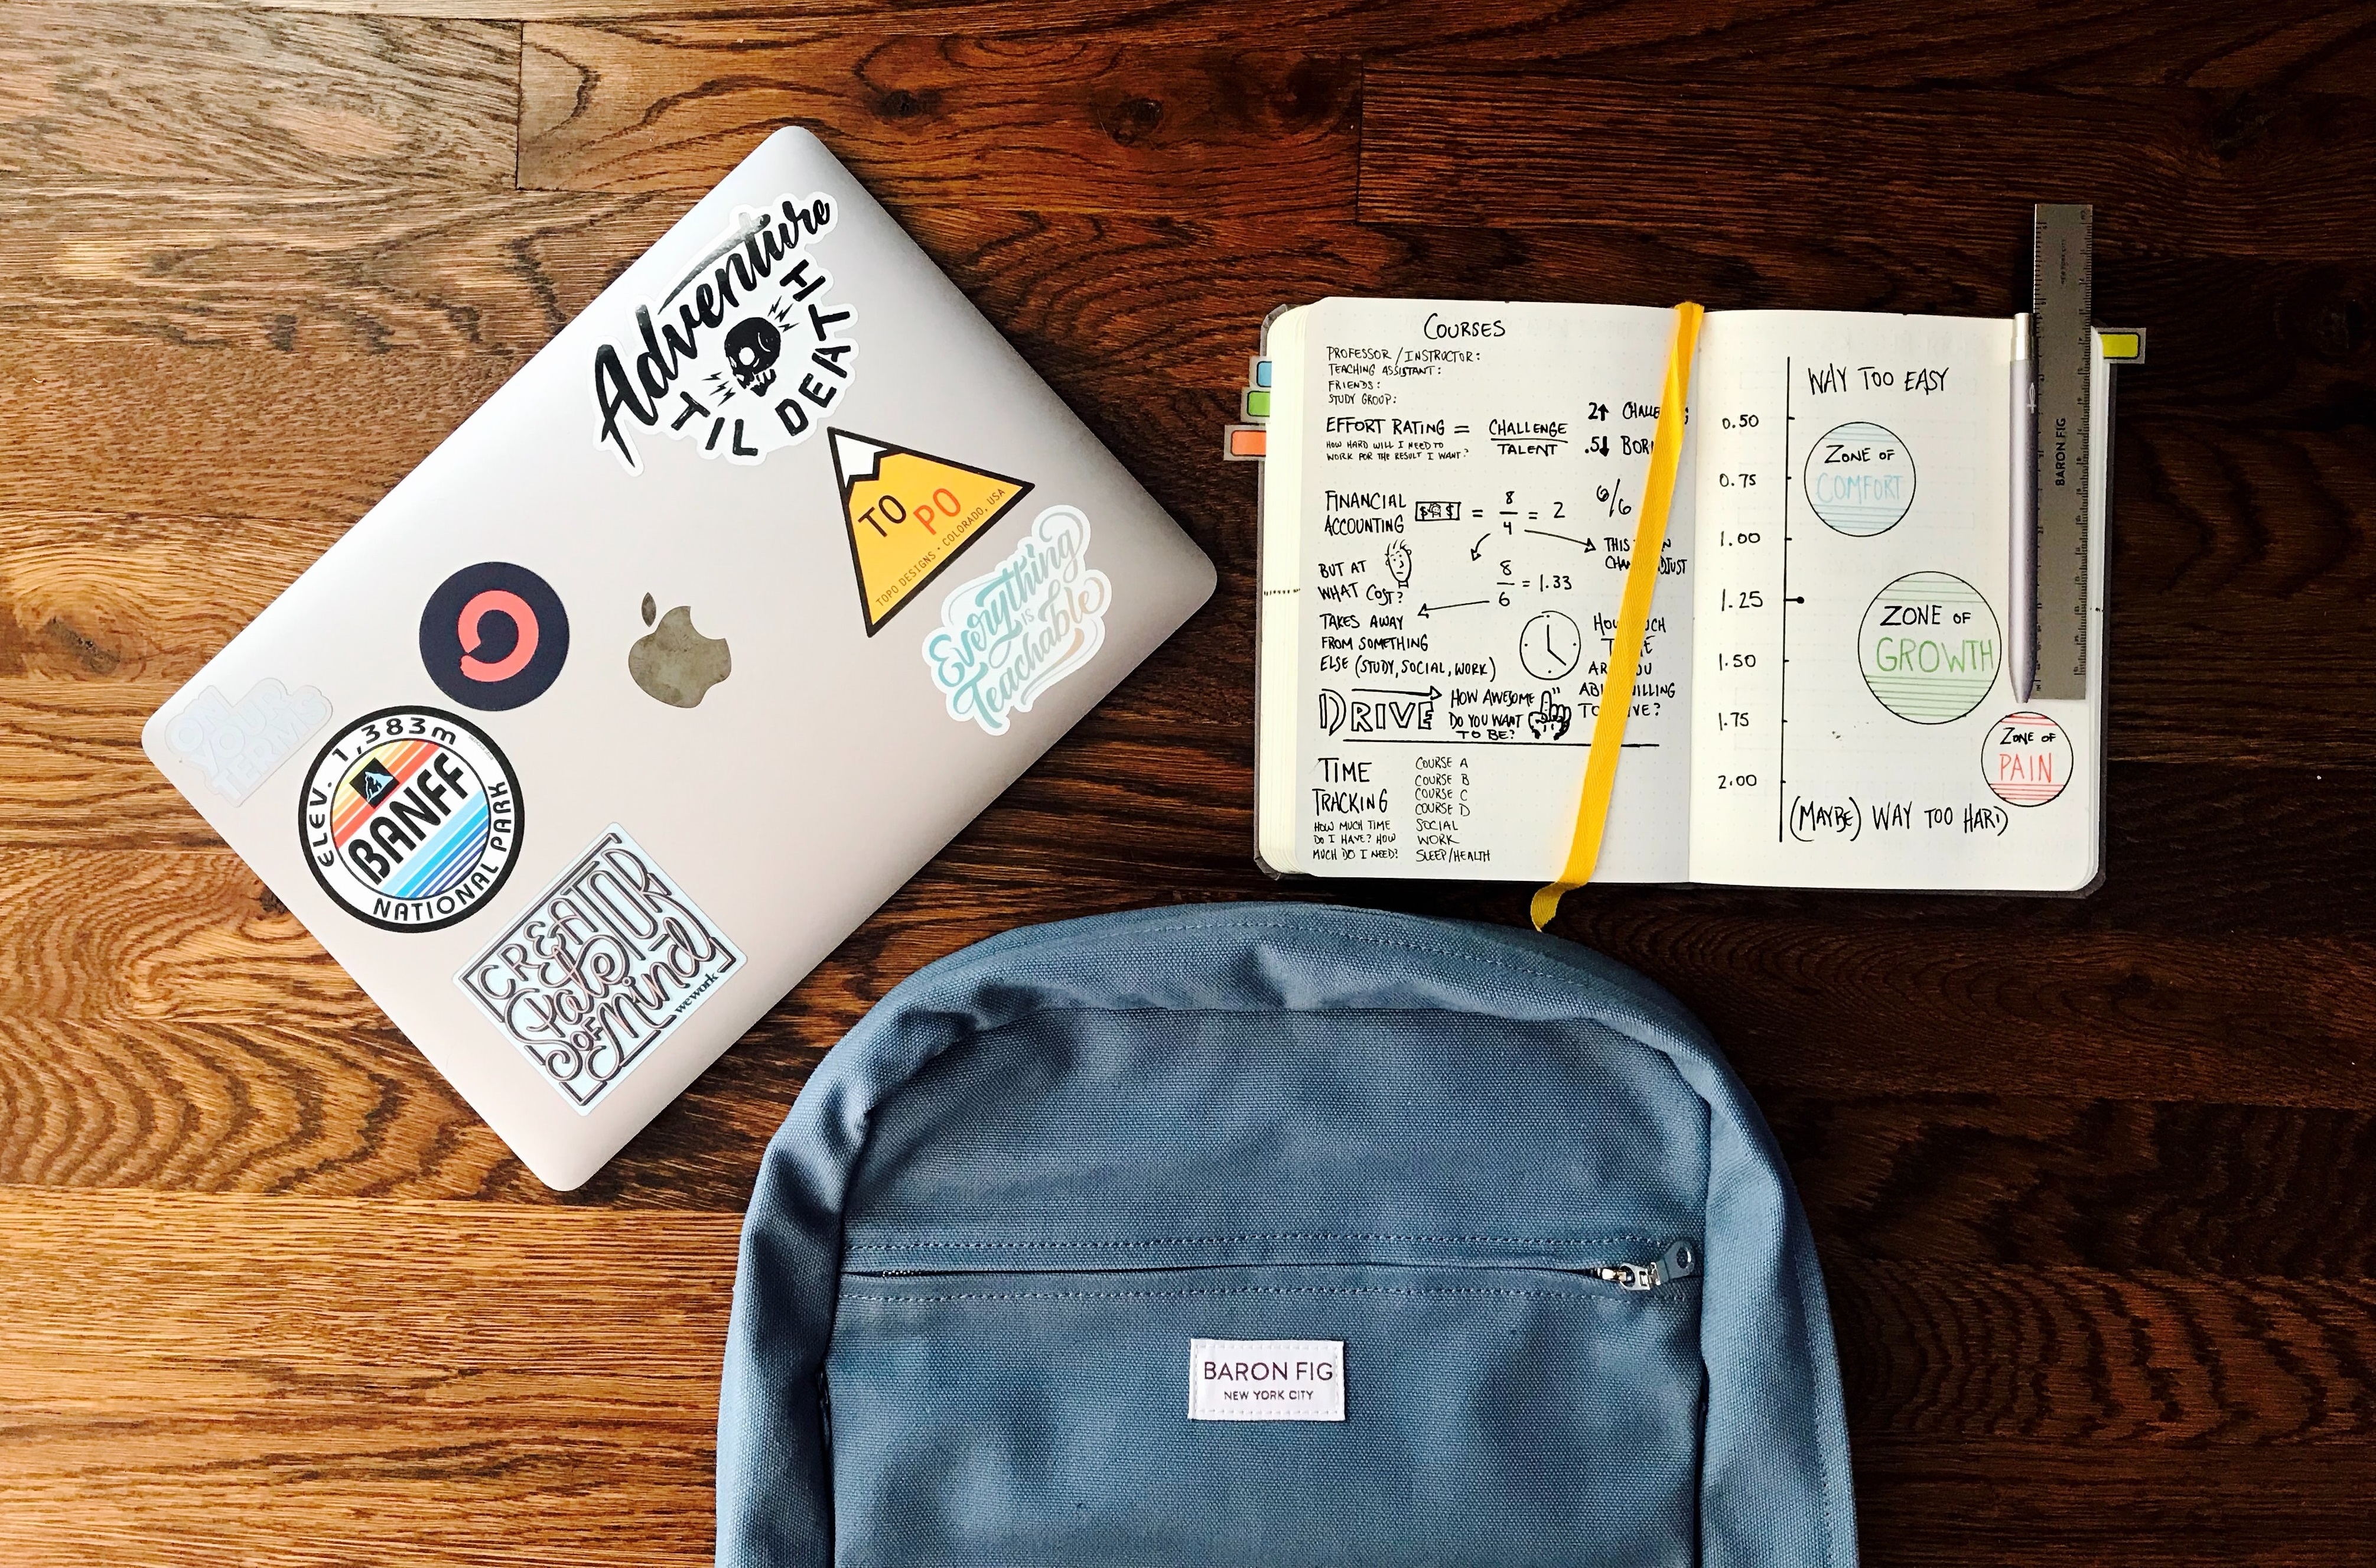 Adventure
TIL DEATH
TO PO
TOPO DESIGNS • COLORADO, USA
Everything
IS
Teachable
ON
YOUR
TERMS
ELEV. 1,383m
BANFF
NATIONAL PARK
CREATOR
State
OF
Mind
wework
COURSES
PROFESSOR / INSTRUCTOR:
TEACHING ASSISTANT:
FRIENDS:
STUDY GROUP:
EFFORT RATING = CHALLENGE
TALENT
HOW HARD WILL I NEED TO
WORK FOR THE RESULT I WANT?
2↑
.5↓
FINANCIAL
ACCOUNTING
$ $ = 8/4 = 2
6/6
THIS
BUT AT
WHAT COST?
8/6 = 1.33
TAKES AWAY
FROM SOMETHING
ELSE (STUDY, SOCIAL, WORK)
DRIVE
HOW AWESOME
DO YOU WANT
TO BE?
TIME
TRACKING
HOW MUCH TIME
DO I HAVE? HOW
MUCH DO I NEED?
COURSE A
COURSE B
COURSE C
COURSE D
SOCIAL
WORK
SLEEP/HEALTH
WAY TOO EASY
0.50
0.75
1.00
1.25
1.50
1.75
2.00
ZONE OF
COMFORT
ZONE OF
GROWTH
ZONE OF
PAIN
(MAYBE) WAY TOO HARD
BARON FIG
BARON FIG
NEW YORK CITY